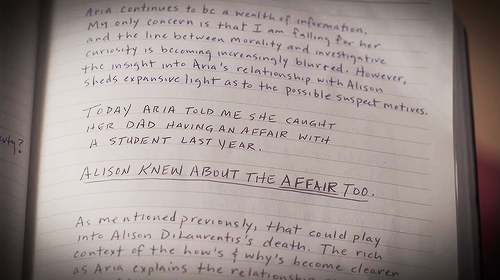 Aria continues to be a wealth of information.
My only concern is that I am falling for her
and the line between morality and investigative
curiosity is becoming increasingly blurred. However,
the insight into Aria's relationship with Alison
sheds expansive light as to the possible suspect motives.
TODAY ARIA TOLD ME SHE CAUGHT
HER DAD HAVING AN AFFAIR WITH
A STUDENT LAST YEAR.
ALISON KNEW ABOUT THE AFFAIR TOO.
why?
As mentioned previously, that could play
into Alison DiLaurentis's death. The rich
context of the how's & why's become clearer
as Aria explains the relationship